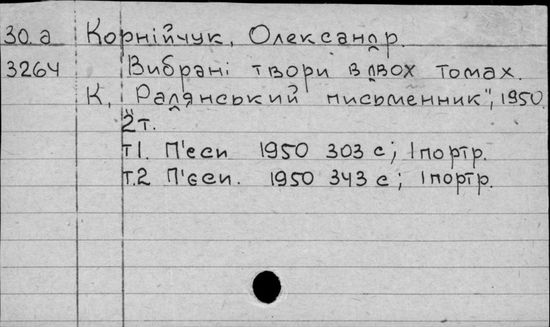 30.а Корнійчук, Олександр.
3264 Вибрані твори в двох томах.
К, "Радянський письменник", 1950.
2т.
т1. П'єси 1950 303 с; 1портр.
т.2 П'єси. 1950 343 с; 1портр.